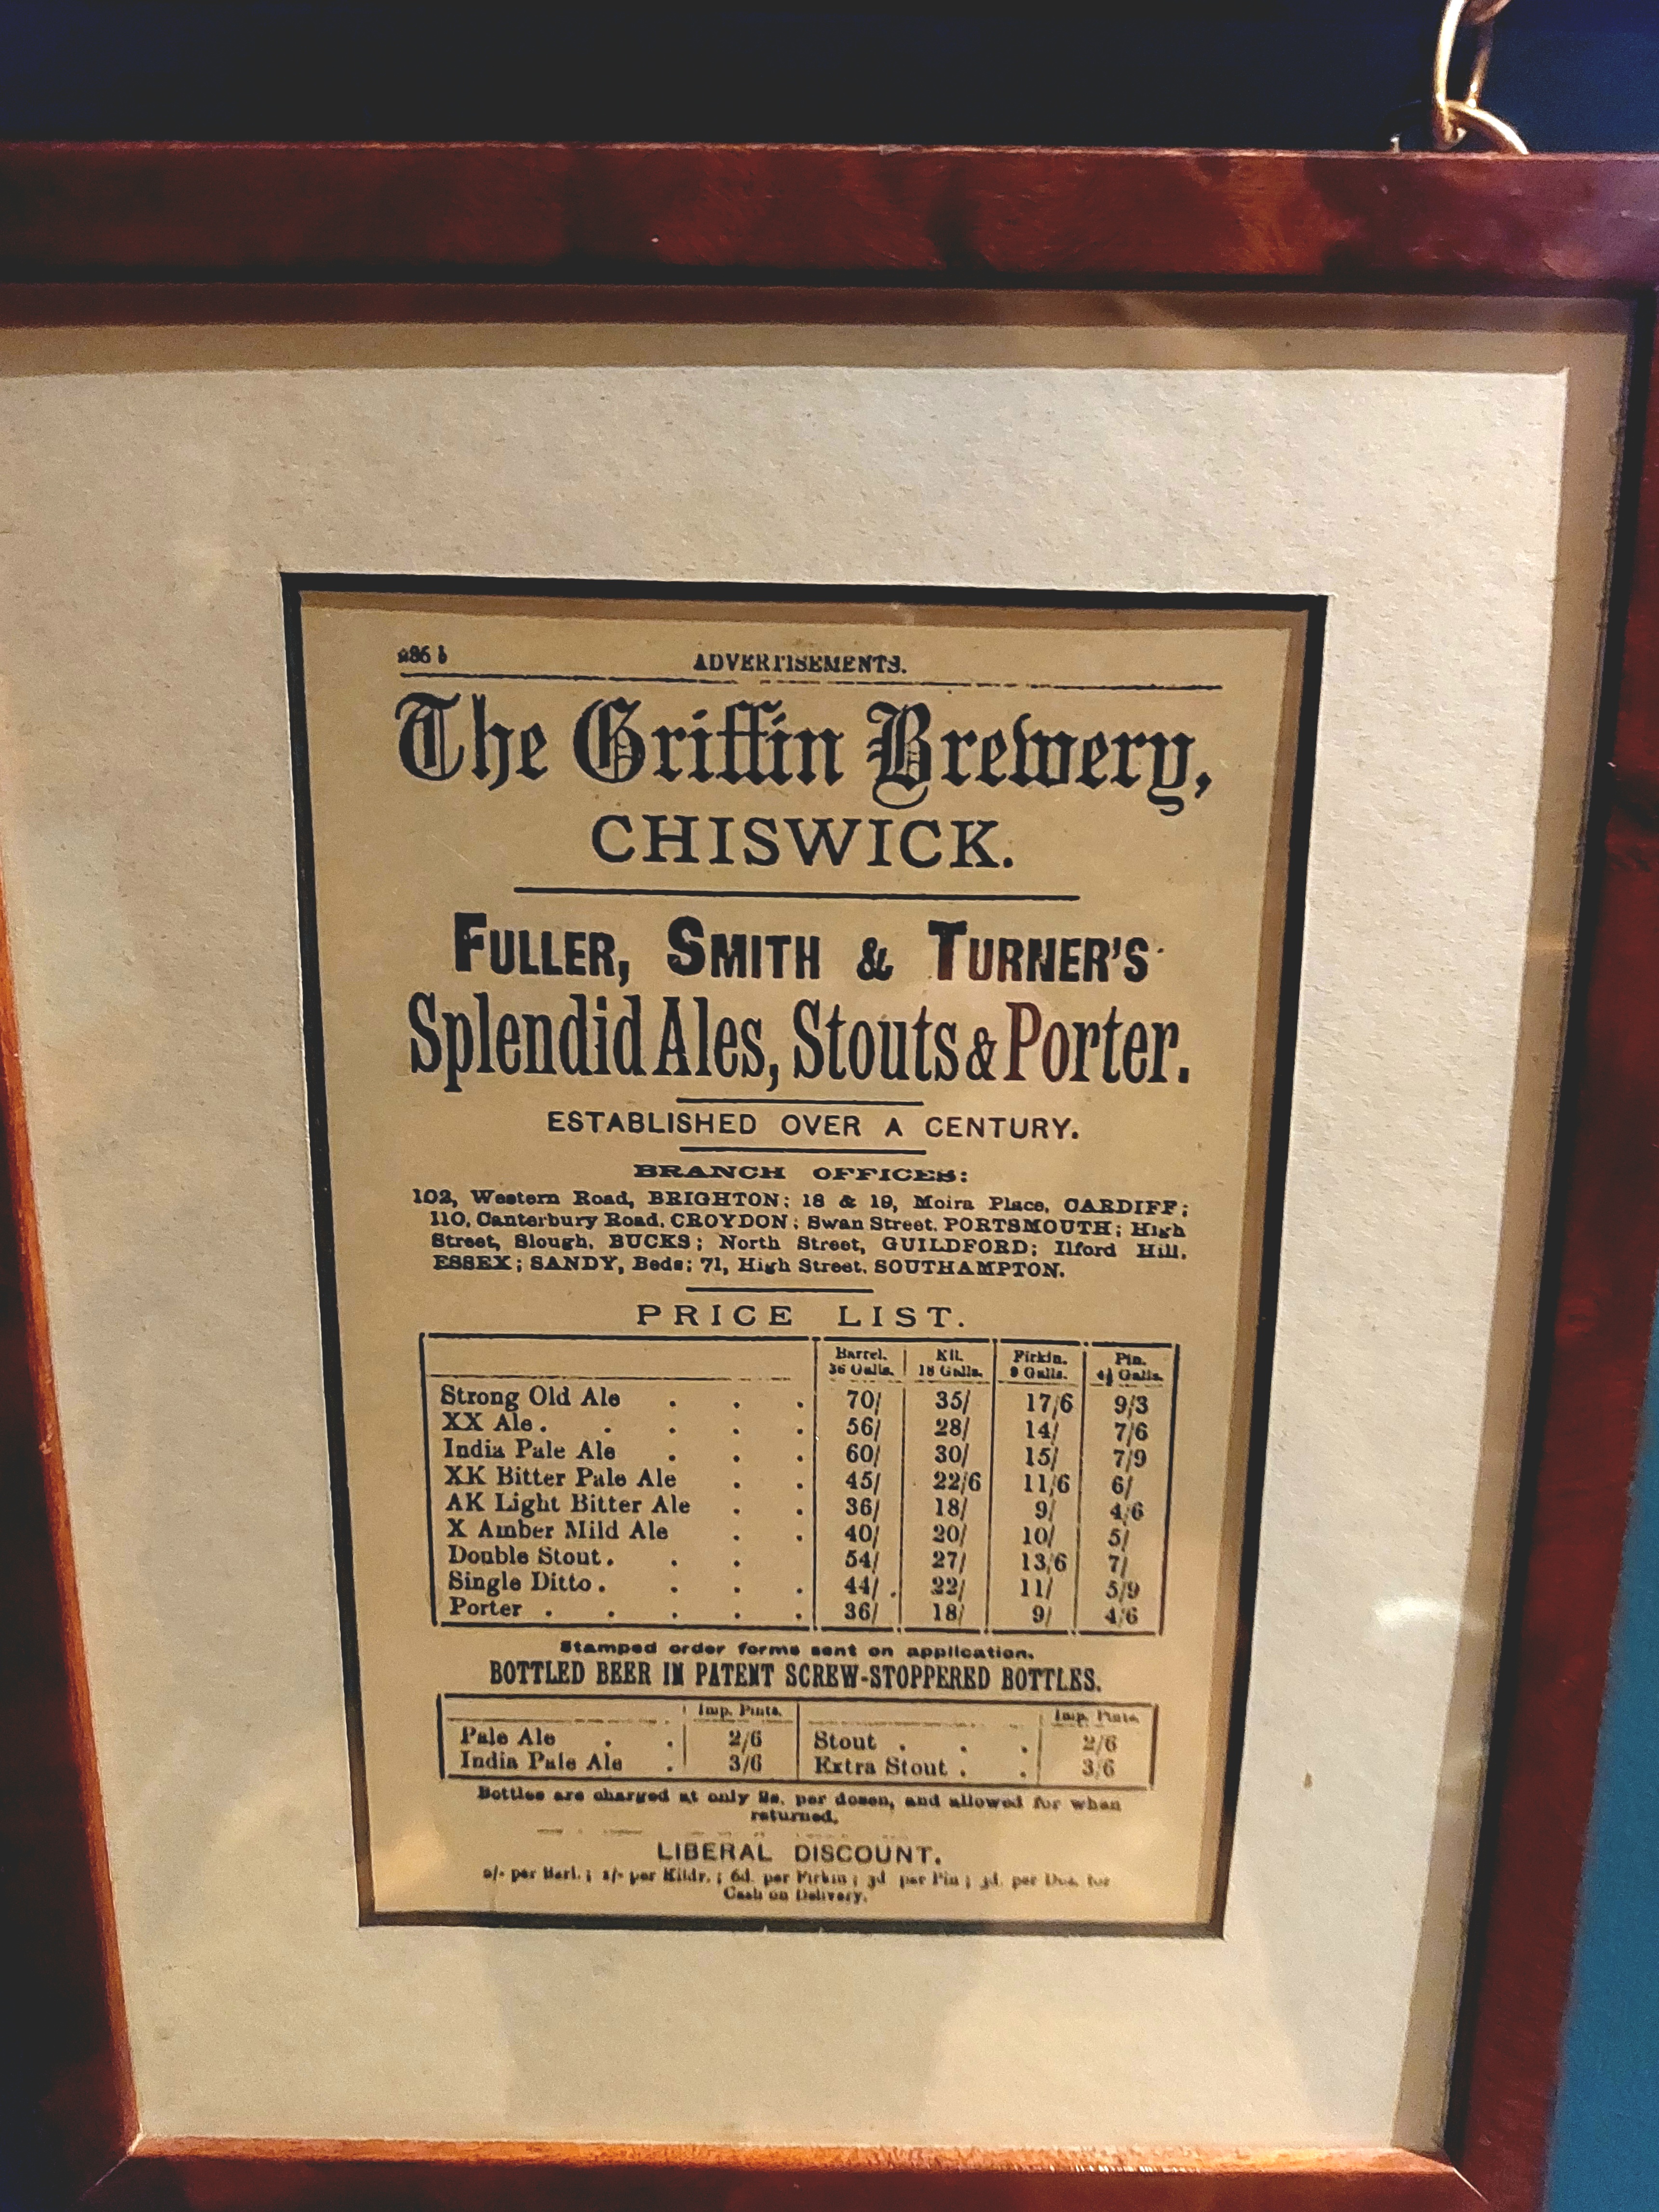 286 b ADVERTISEMENTS.
The Griffin Brewery,
CHISWICK.
FULLER, SMITH & TURNER'S
Splendid Ales, Stouts & Porter.
ESTABLISHED OVER A CENTURY.
BRANCH OFFICES:
102, Western Road, BRIGHTON; 18 & 19, Moira Place, CARDIFF;
110, Canterbury Road, CROYDON; Swan Street, PORTSMOUTH; High
Street, Slough, BUCKS; North Street, GUILDFORD; Ilford Hill,
ESSEX; SANDY, Beds; 71, High Street, SOUTHAMPTON.
PRICE LIST.
Barrel. Kil. Firkin. Pin.
36 Galls. 18 Galls. 9 Galls. 4½ Galls.
Strong Old Ale . . . 70/ 35/ 17/6 9/3
XX Ale . . . . . 56/ 28/ 14/ 7/6
India Pale Ale . . . 60/ 30/ 15/ 7/9
XK Bitter Pale Ale . . 45/ 22/6 11/6 6/
AK Light Bitter Ale . . 36/ 18/ 9/ 4/6
X Amber Mild Ale . . 40/ 20/ 10/ 5/
Double Stout . . . 54/ 27/ 13/6 7/
Single Ditto . . . . 44/ 22/ 11/ 5/9
Porter . . . . . 36/ 18/ 9/ 4/6
Stamped order forms sent on application.
BOTTLED BEER IN PATENT SCREW-STOPPERED BOTTLES.
Imp. Pints. Imp. Pints.
Pale Ale . . 2/6 Stout . . . 2/6
India Pale Ale . 3/6 Extra Stout . . 3/6
Bottles are charged at only 2s. per dozen, and allowed for when
returned.
LIBERAL DISCOUNT.
per Barl.; per Kildr.; 6d. per Firkin; 3d per Pin; per Doz. for
Cash on Delivery.